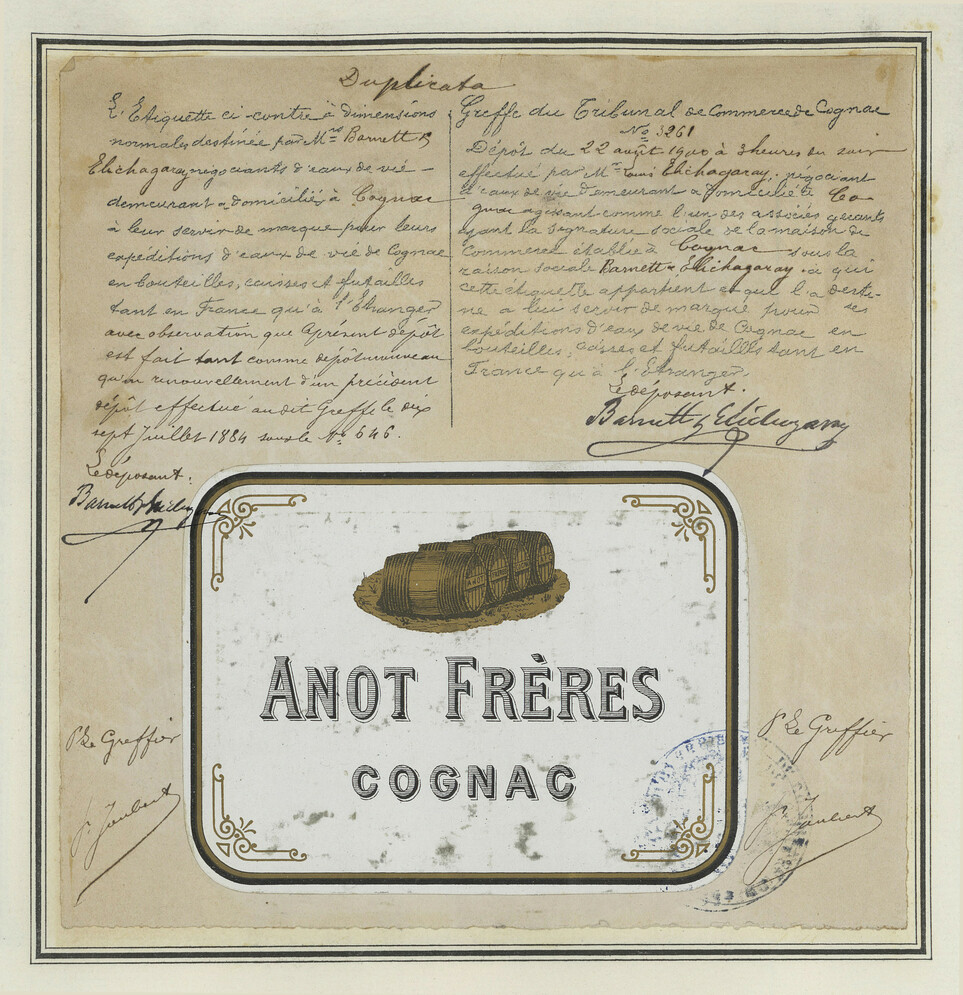 Duplicata
L'Etiquette ci-contre à dimensions
normales destinée par Mrs Barnett &
Elichagaray negociants d'eaux de vie
demeurant & domiciliés à Cognac
à leur servir de marque pour leurs
expéditions d'eaux de vie de Cognac
en bouteilles, caisses et futailles
tant en France qu'à l'Etranger
avec observation que le présent dépôt
est fait tant comme dépôt nouveau
qu'en renouvellement d'un précédent
dépôt effectué au dit Greffe le dix
sept Juillet 1884 sous le No 646.
Le déposant.
Barnett & Elichagaray
Greffe du Tribunal de Commerce de Cognac
No 3261
Dépôt du 22 août 1900 à 3 heures du soir
effectué par Mr Louis Elichagaray, négociant
d'eaux de vie demeurant & domicilié à Co-
gnac agissant comme l'un des associés gérants
ayant la signature sociale de la maison de
commerce établie à Cognac sous la
raison sociale Barnett & Elichagaray à qui
cette étiquette appartient et qui l'a desti-
née à leur servir de marque pour ses
expéditions d'eaux de vie de Cognac en
bouteilles, caisses et futailles tant en
France qu'à l'Etranger.
Le déposant.
Barnett & Elichagaray
ANOT FRÈRES
COGNAC
P. Le Greffier
J. Joubert
P. Le Greffier
J. Joubert